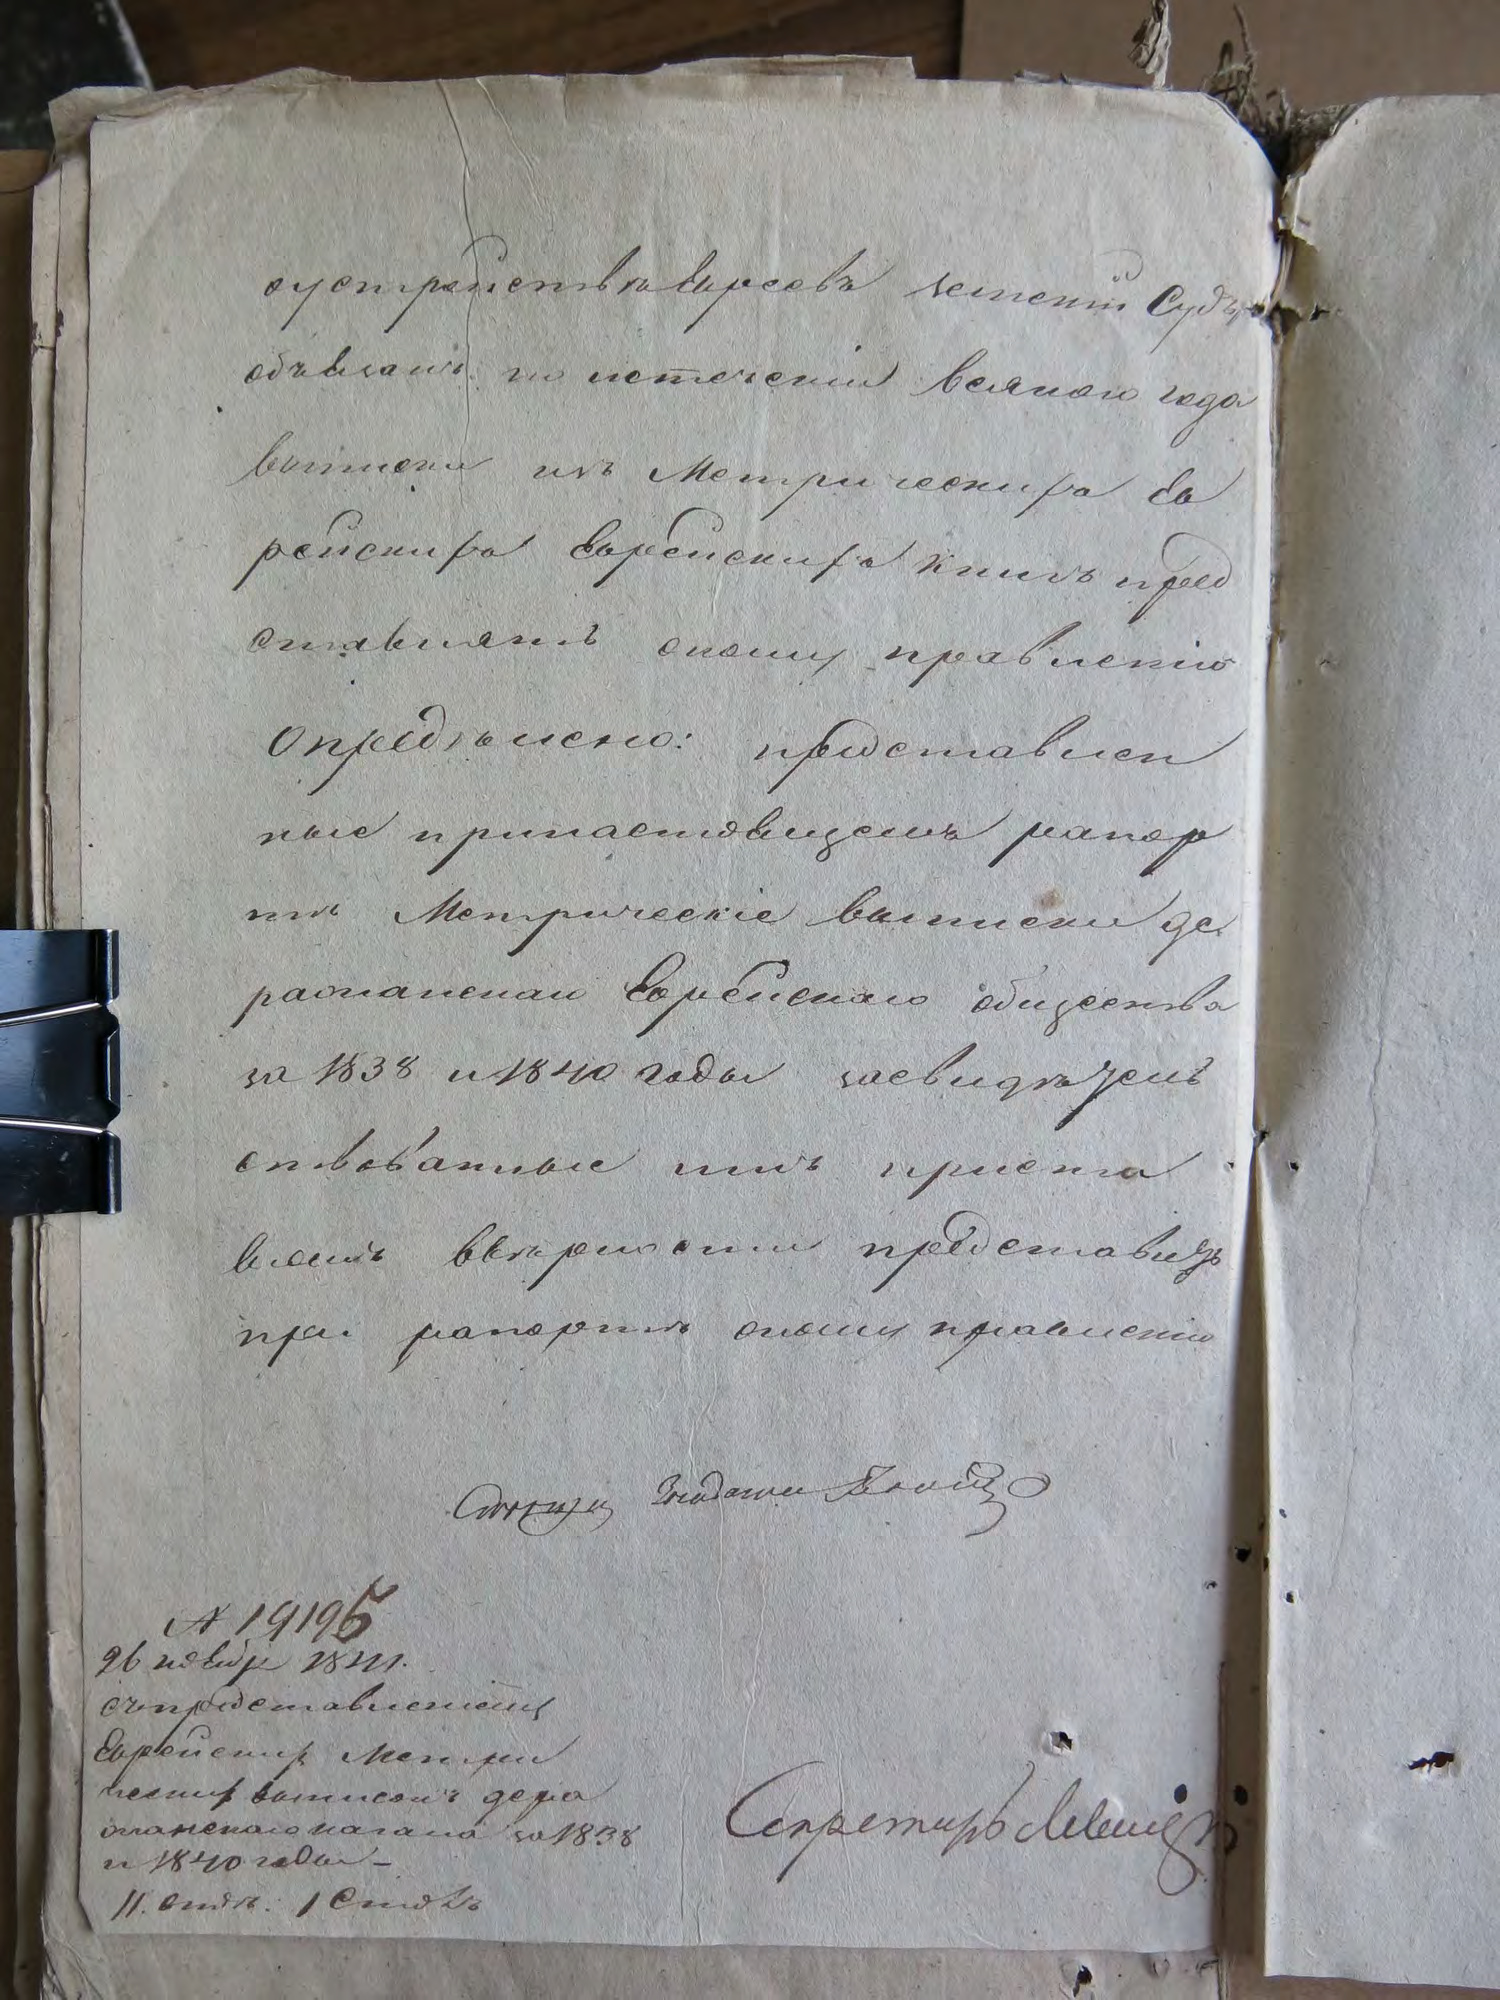 оустройствѣ Евреевъ земскій Судъ,
обязанъ по истеченіи всякаго года
выписки изъ Метрическихъ Ев
рейскихъ Еврейскихъ книгъ пред
ставлять оному правленію
Опредѣлено: представлен
ные принастоящемъ рапор
тѣ Метрическіе выписки де
ражнянскаго Еврейскаго общества
за 1838 и 1840 годы засвидѣтель
ствованные имъ приста
вомъ вѣрности представить
при рапортѣ оному правленію
№ 19195
26 ноября 1841.
съпредставленіемъ
Еврейских Метри
ческих выписокъ дера
жнянскаго кагала за 1838
и 1840 годы –
11. 1 Столъ
Секретарь